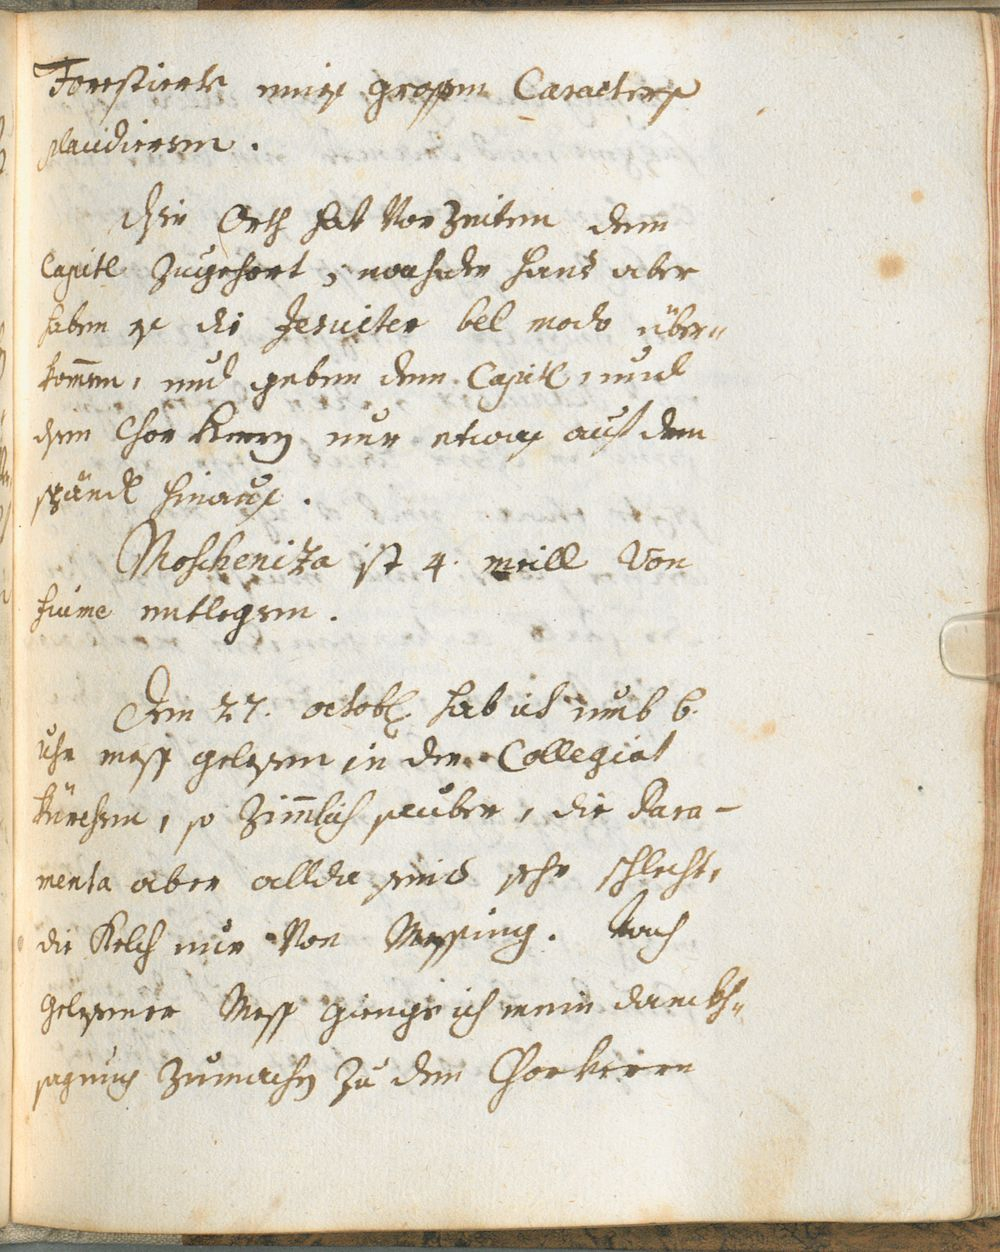 Forestiers eines grossen Caracters
plaudiersen.
Diser Orth hat Vor Zeiten dem
Capitl Zugehört, nachder hand aber
haben es die Jesuiter bel modo über-
kom̄en, und geben dem Capitl, und
den Chor Herrn nur etwas auf dem
händl hinaus.
Moschenitza ist 4. meill Von
fiume entlegen.
Den 27. octobr hab ich umb 6.
uhr mess gelesen in der Collegiat
kürchen, so Zim̄lich sauber, die Para-
menta aber allda seind sehr schlecht,
die Kelch nur Von Messing. Nach
gelesener Mess gienge ich mein danckh-
sagung Zumachen Zu den Chorherrn